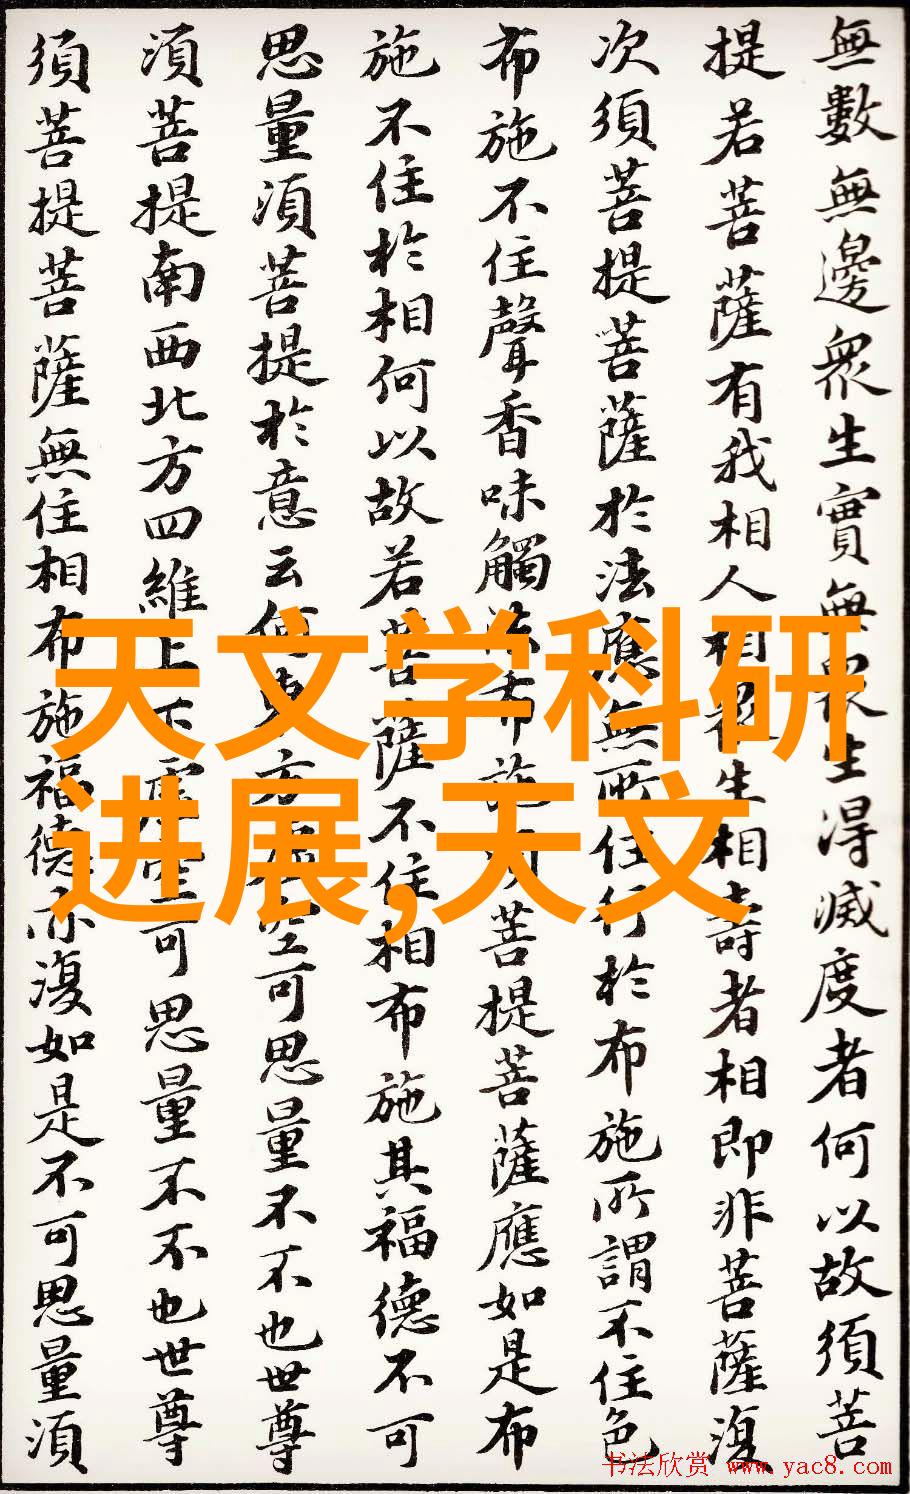 無數無邊衆生實無衆生得滅度者何以故須菩
提若菩薩有我相人相衆生相壽者相即非菩薩復
次須菩提菩薩於法應無所住行於布施所謂不住色
布施不住聲香味觸法布施須菩提菩薩應如是布
施不住於相何以故若菩薩不住相布施其福德不可
思量須菩提於意云何東方虛空可思量不不也世尊
須菩提南西北方四維上下虛空可思量不不也世尊
須菩提菩薩無住相布施福德亦復如是不可思量須
天文学科研
进展,天文
书法欣赏 www.yac8.com